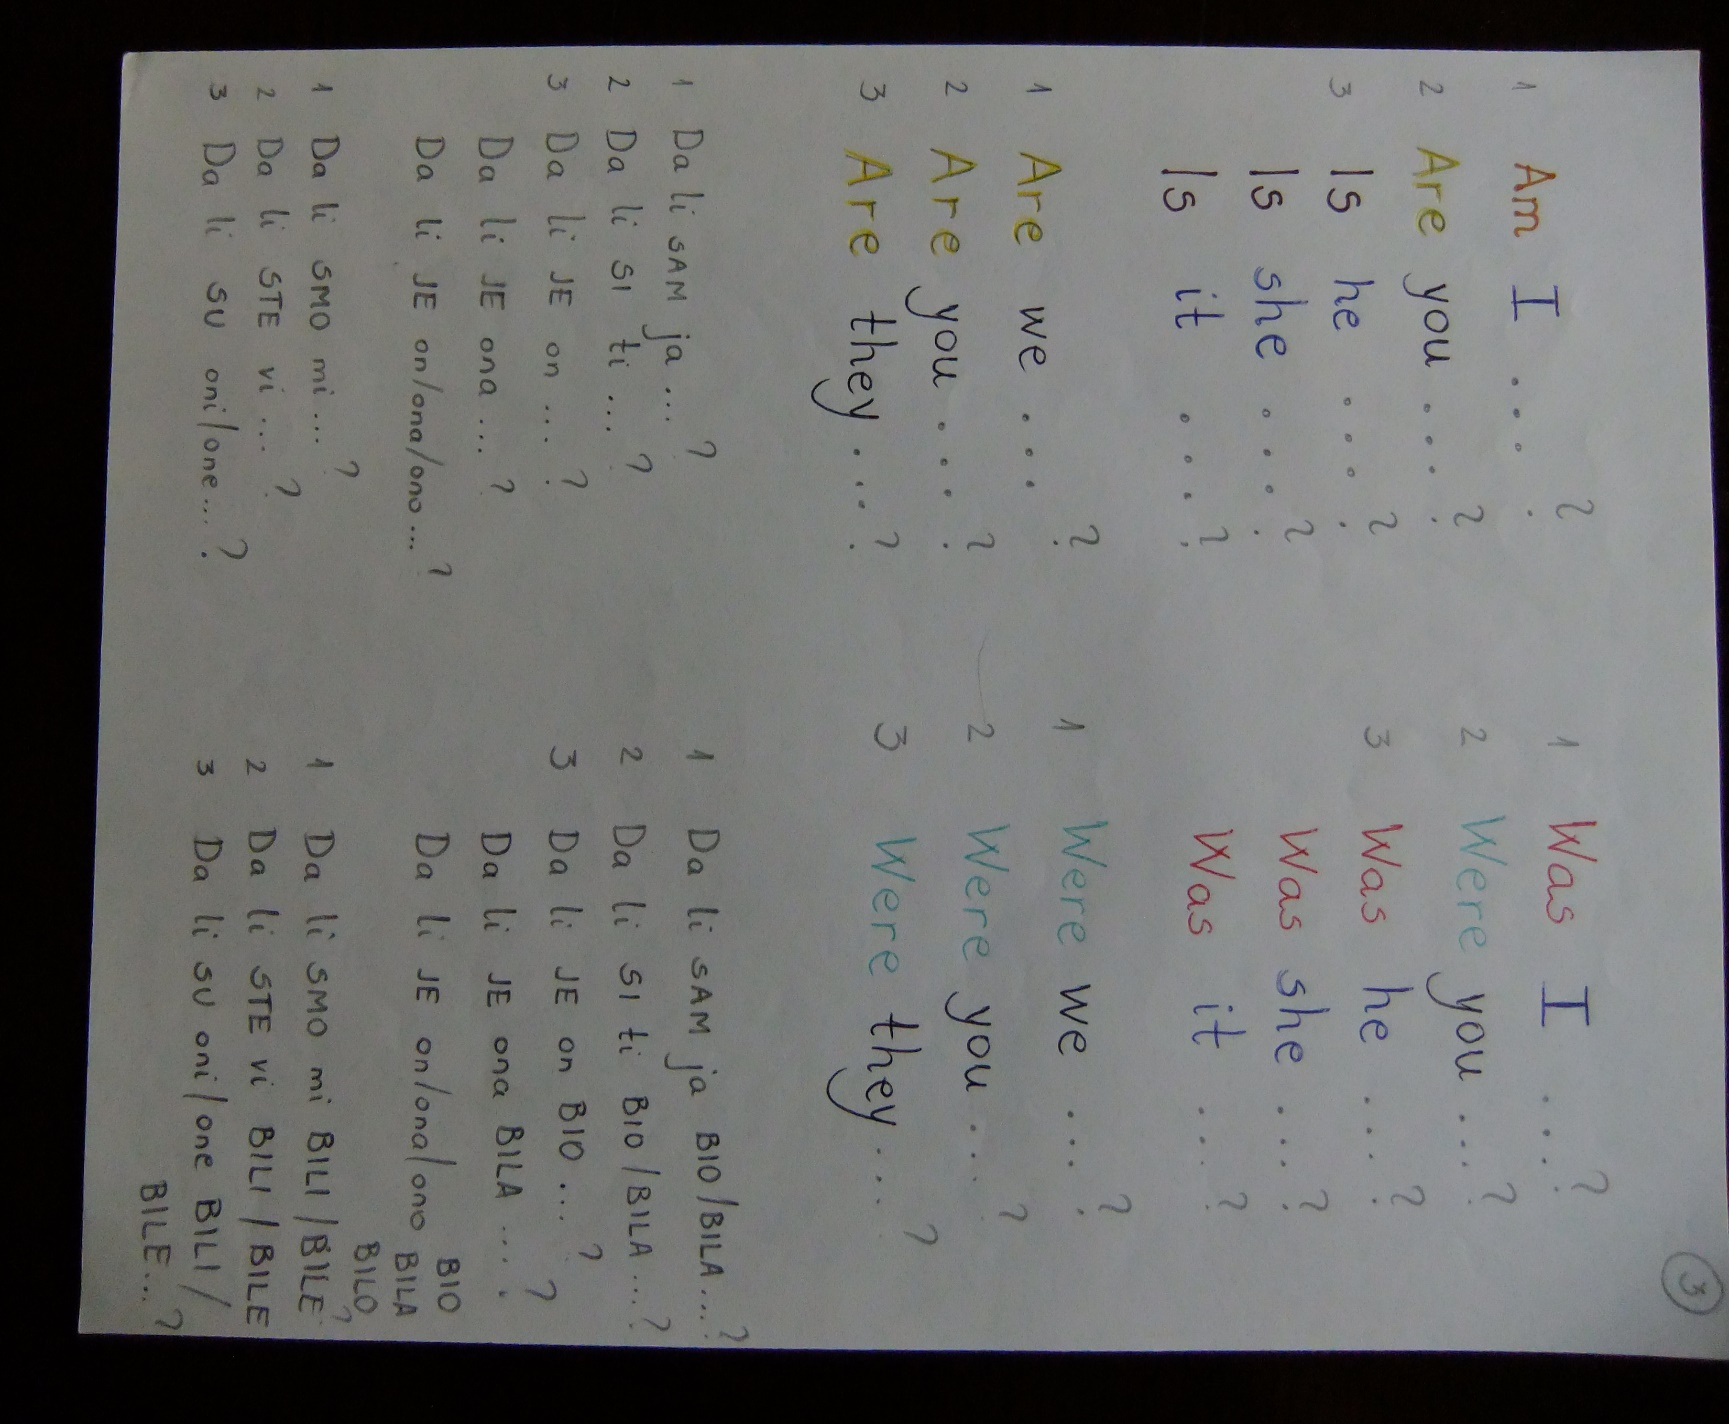 3
1 Am I ... ?
2 Are you ... ?
3 Is he ... ?
Is she ... ?
Is it ... ?
1 Are we ... ?
2 Are you ... ?
3 Are they ... ?
1 Da li SAM ja ... ?
2 Da li SI ti ... ?
3 Da li JE on ... ?
Da li JE ona ... ?
Da li JE on/ona/ono ... ?
1 Da li SMO mi ... ?
2 Da li STE vi ... ?
3 Da li SU oni/one ... ?
1 Was I ... ?
2 Were you ... ?
3 Was he ... ?
Was she ... ?
Was it ... ?
1 Were we ... ?
2 Were you ... ?
3 Were they ... ?
1 Da li SAM ja BIO/BILA ... ?
2 Da li SI ti BIO/BILA ... ?
3 Da li JE on BIO ... ?
Da li JE ona BILA ... ?
Da li JE on/ona/ono BIO
BILA
BILO ?
1 Da li SMO mi BILI/BILE
2 Da li STE vi BILI/BILE
3 Da li SU oni/one BILI/
BILE ... ?